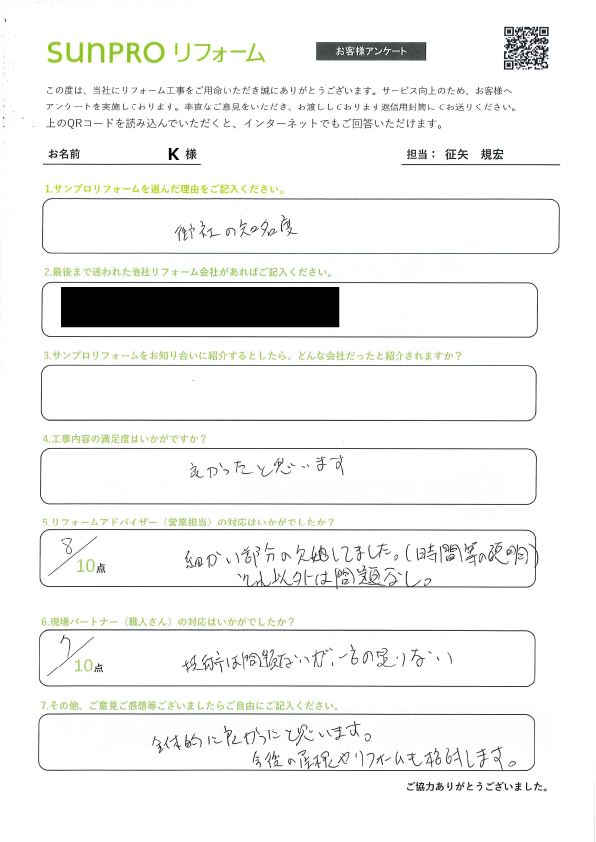 SUNPRO リフォーム
お客様アンケート
この度は、当社にリフォーム工事をご用命いただき誠にありがとうございます。サービス向上のため、お客様へ
アンケートを実施しております。率直なご意見をいただき、お渡ししております返信用封筒にてお送りください。
上のQRコードを読み込んでいただくと、インターネットでもご回答いただけます。
お名前 K 様 担当： 征矢 規宏
1.サンプロリフォームを選んだ理由をご記入ください。
御社の知名度
2.最後まで迷われた他社リフォーム会社があればご記入ください。
3.サンプロリフォームをお知り合いに紹介するとしたら、どんな会社だったと紹介されますか？
4.工事内容の満足度はいかがですか？
良かったと思います
5.リフォームアドバイザー（営業担当）の対応はいかがでしたか？
8/10点
細かい部分の欠如してました。(時間等の説明)
それ以外は問題なし。
6.現場パートナー（職人さん）の対応はいかがでしたか？
7/10点
技術は問題ないが、一言の足りない
7.その他、ご意見ご感想等ございましたらご自由にご記入ください。
全体的に良かったと思います。
今後の屋根やリフォームも検討します。
ご協力ありがとうございました。